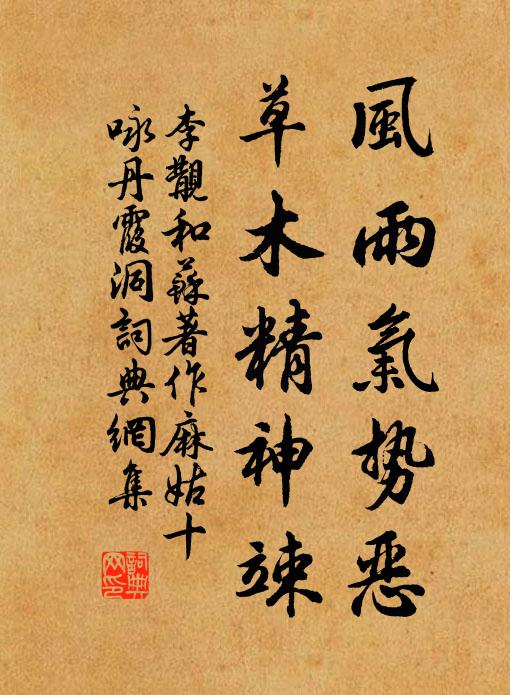 風雨氣势恶
草木精神竦
李覯和蘇著作麻姑十
咏丹霞洞詞典網集
詞典网印